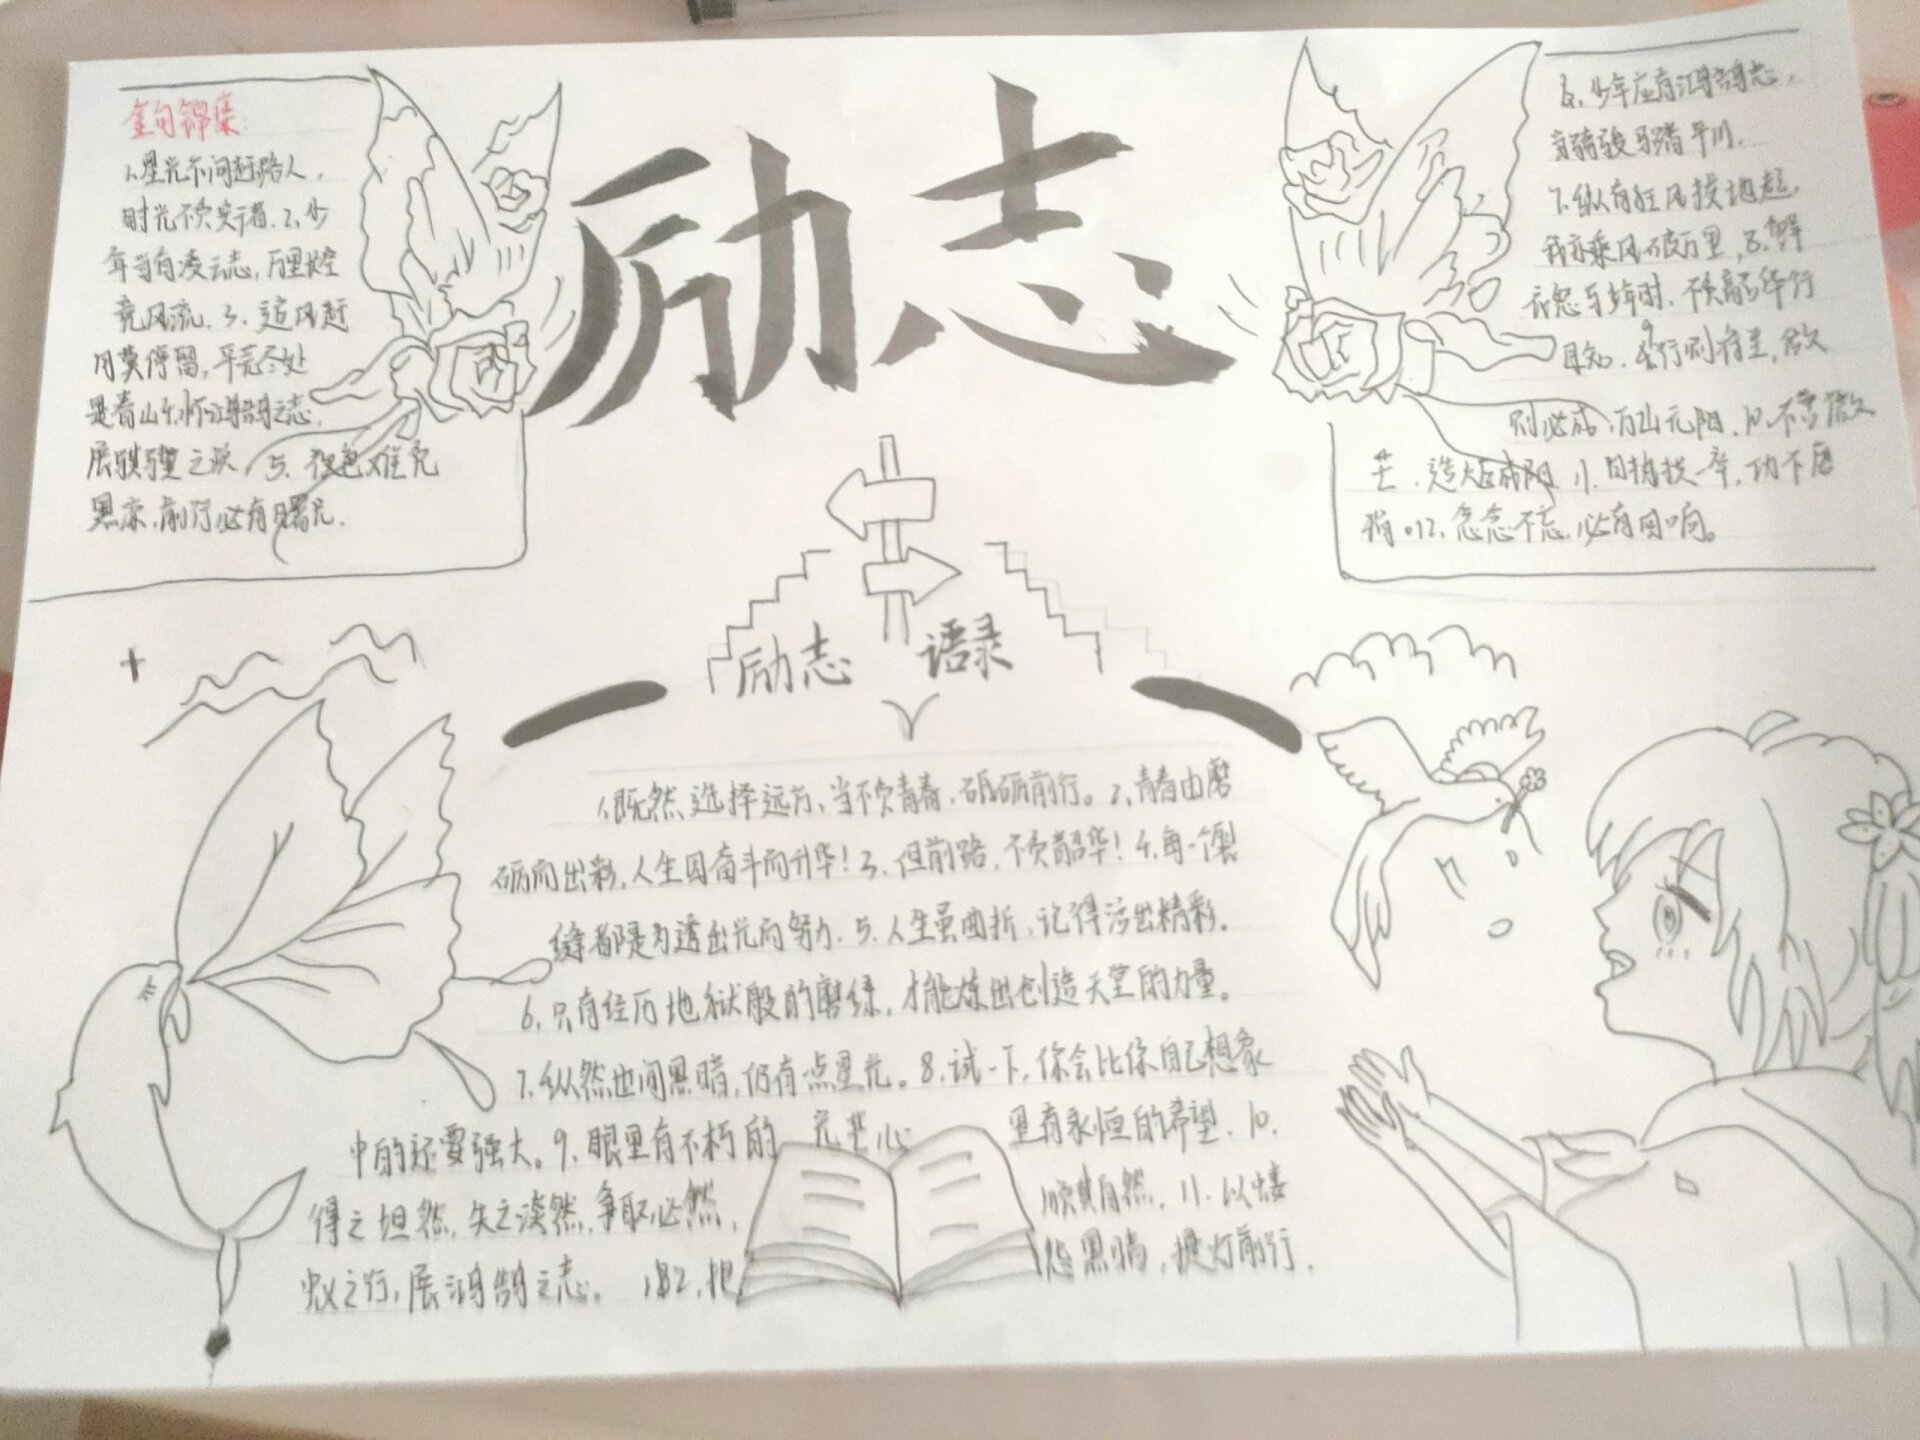 励志
金句锦集
1.星光不问赶路人，
时光不负实干者.2.少
年当有凌云志，万里长空
竞风流.3.追风赶
月莫停留，平芜尽处
是春山4.怀鸿鹄之志，
展骐骥之跃，5.夜色难免
黑凉，前行必有曙光.
6.少年应有鸿鹄志，
当骑骏马踏平川.
7.纵有狂风拔地起，
我亦乘风破万里，8.
我怨与少年时.不负韶华行
且知.9行则将至，做
则必成，万山无阻.10.不啻微
芒.造炬成阳 11.日拱一卒，功不唐
捐。12.念念不忘，必有回响。
励志 语录
1.既然选择远方，当不负青春，砥砺前行。2.青春由磨
砺而出彩，人生因奋斗而升华！3.但前路，不负韶华！4.每一个裂
缝都是为透出光而努力.5.人生虽曲折，记得活出精彩。
6.只有经历地狱般的磨练，才能炼出创造天堂的力量。
7.纵然世间黑暗，仍有一点星光。8.试一下，你会比你自己想象
中的还要强大。9.眼里有不朽的 光芒心 里有永恒的希望.10.
得之坦然，失之淡然，争取必然， 顺其自然，11.以蝼
蚁之行，展鸿鹄之志。12.把 黑 提灯前行.